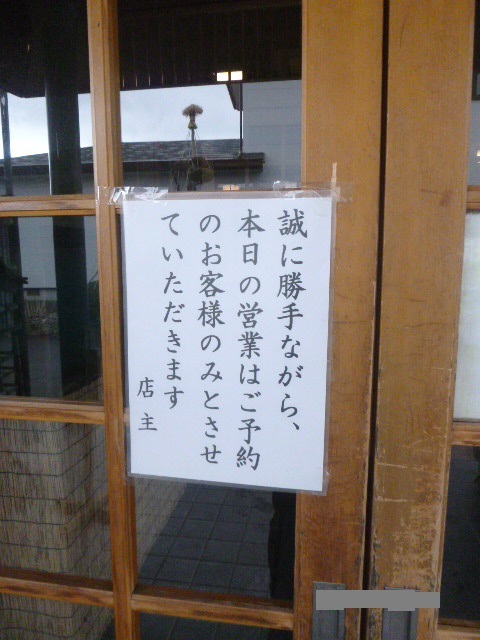 誠に勝手ながら、
本日の営業はご予約
のお客様のみとさせ
ていただきます
店主